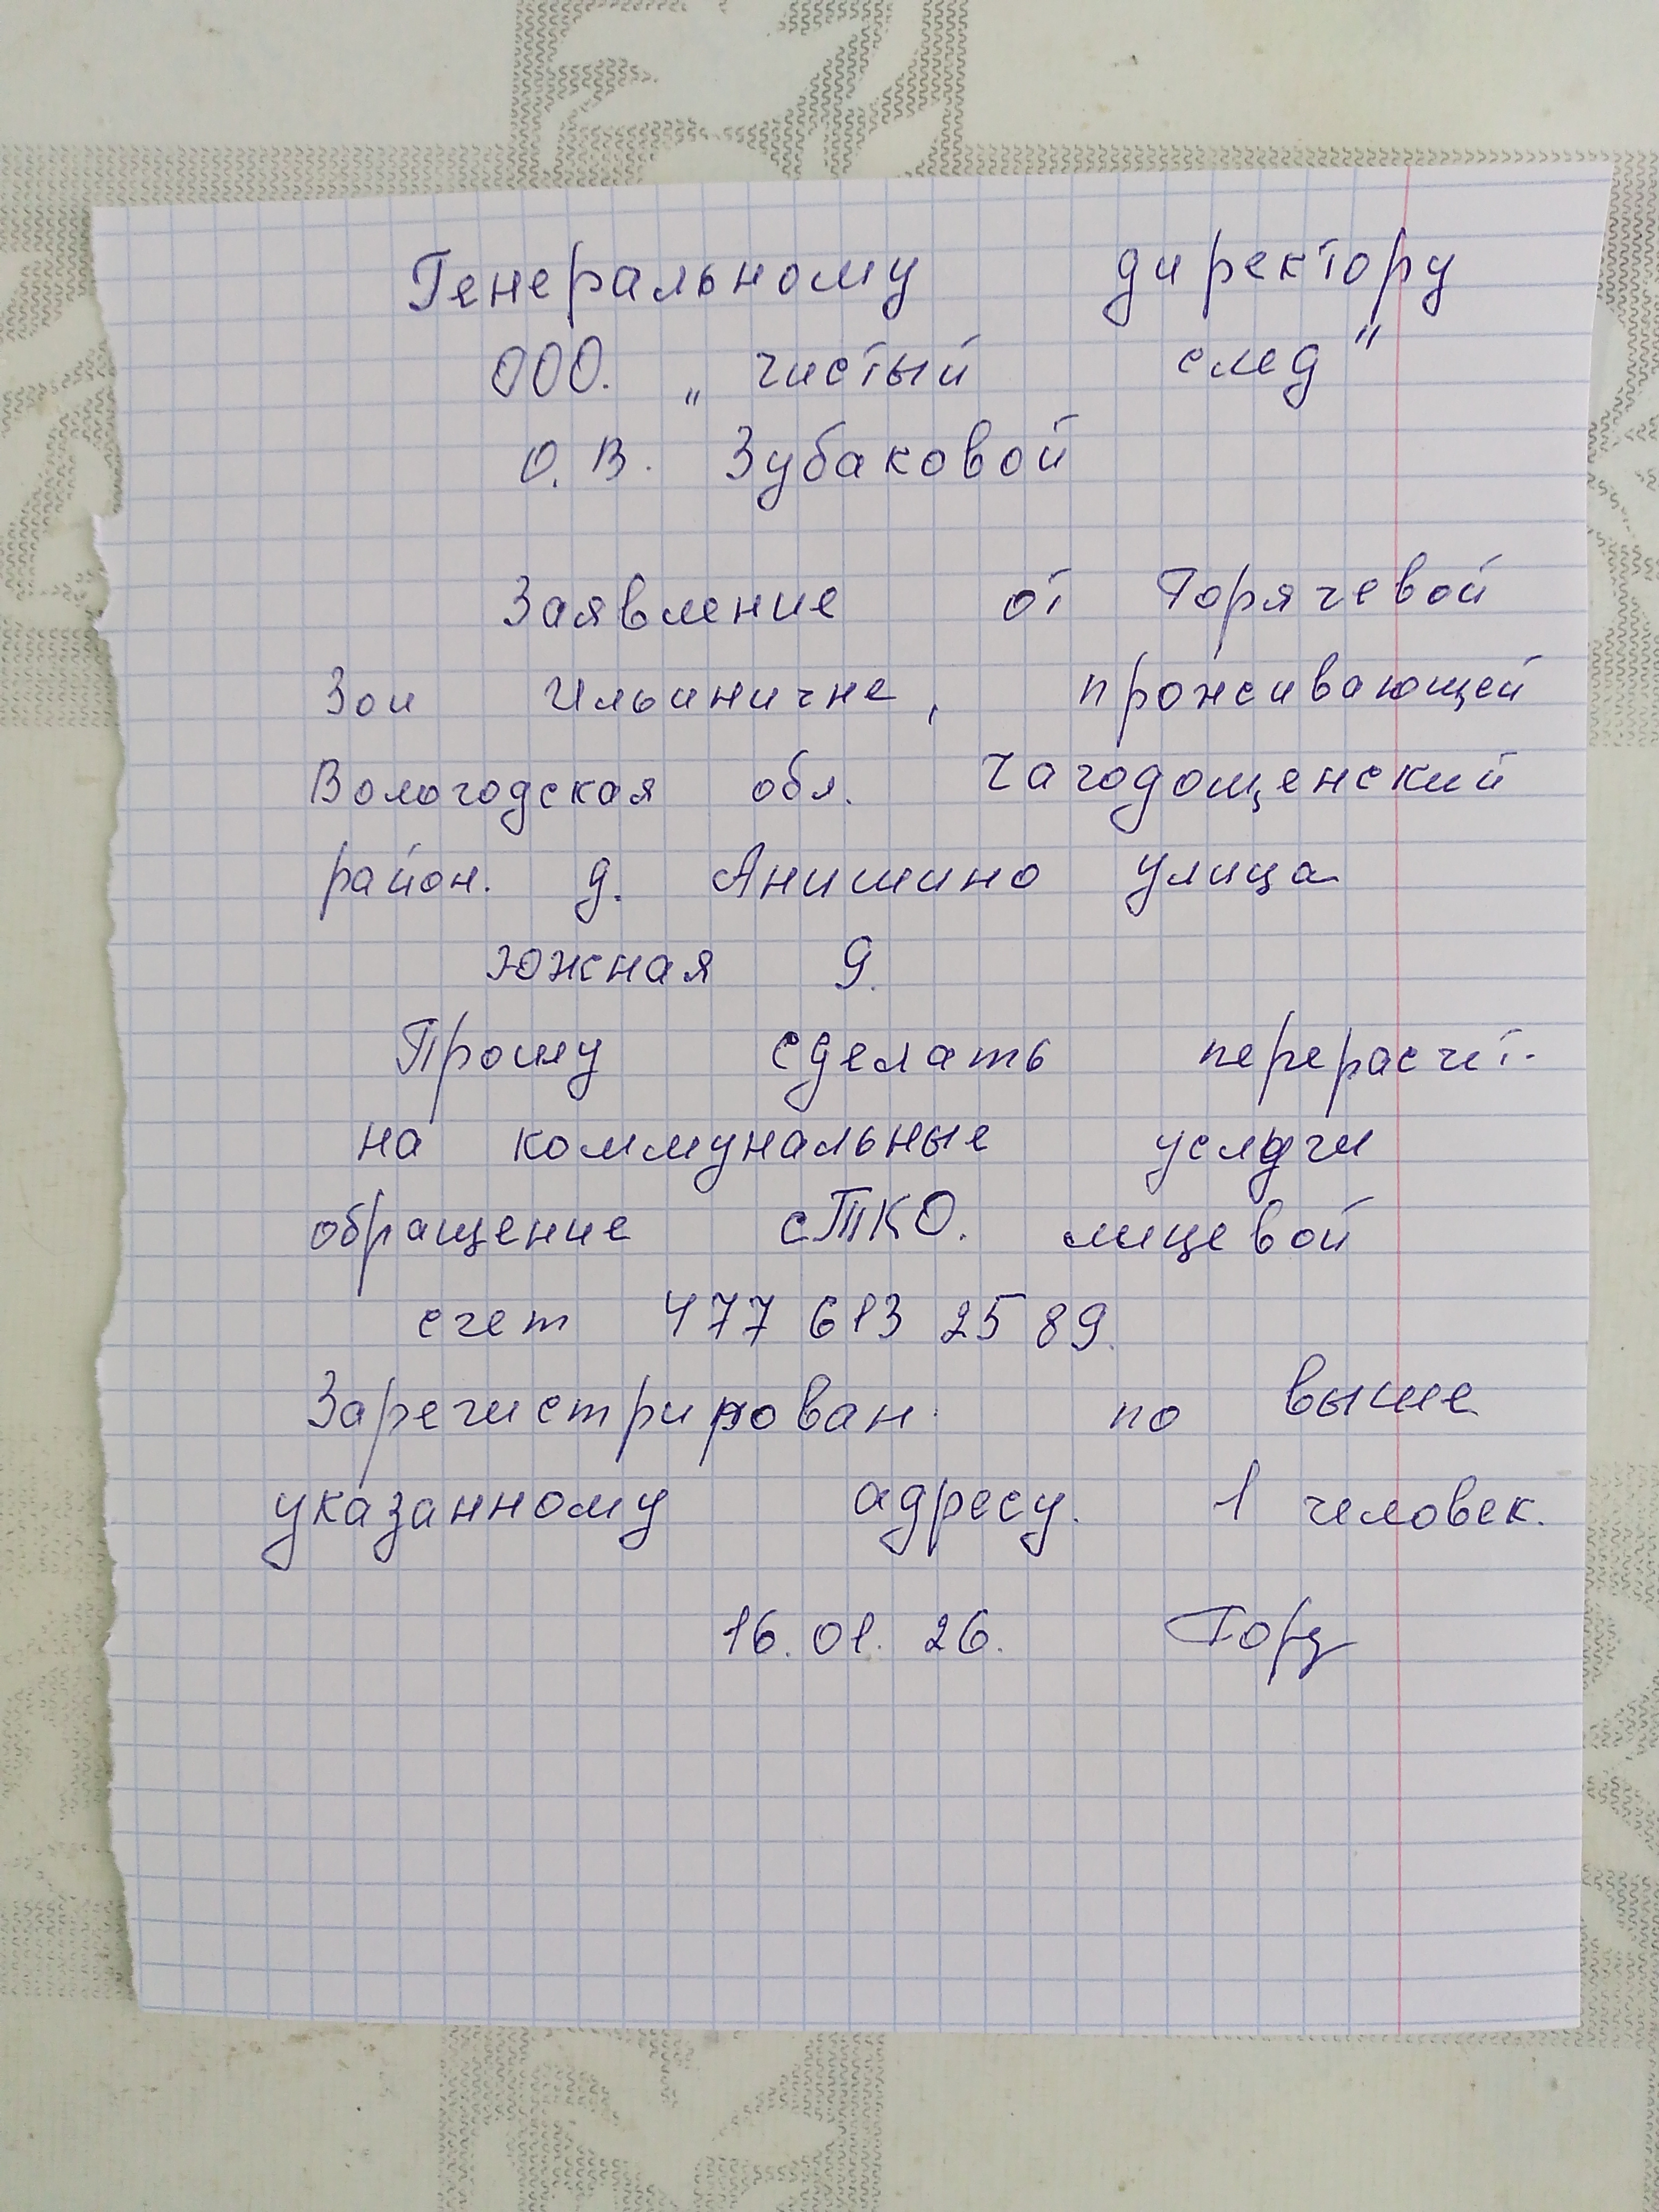 Генеральному директору
ООО. „чистый след"
О. В. Зубаковой
Заявление от Горячевой
Зои Ильиничне, проживающей
Вологодская обл. Чагодощенский
район. д. Анишино улица
Южная 9.
Прошу сделать перерасчет.
на коммунальные услуги
обращение с ТКО. лицевой
счет 477 613 25 89.
Зарегистрирован по выше
указанному адресу. 1 человек.
16. 01. 26. Гор